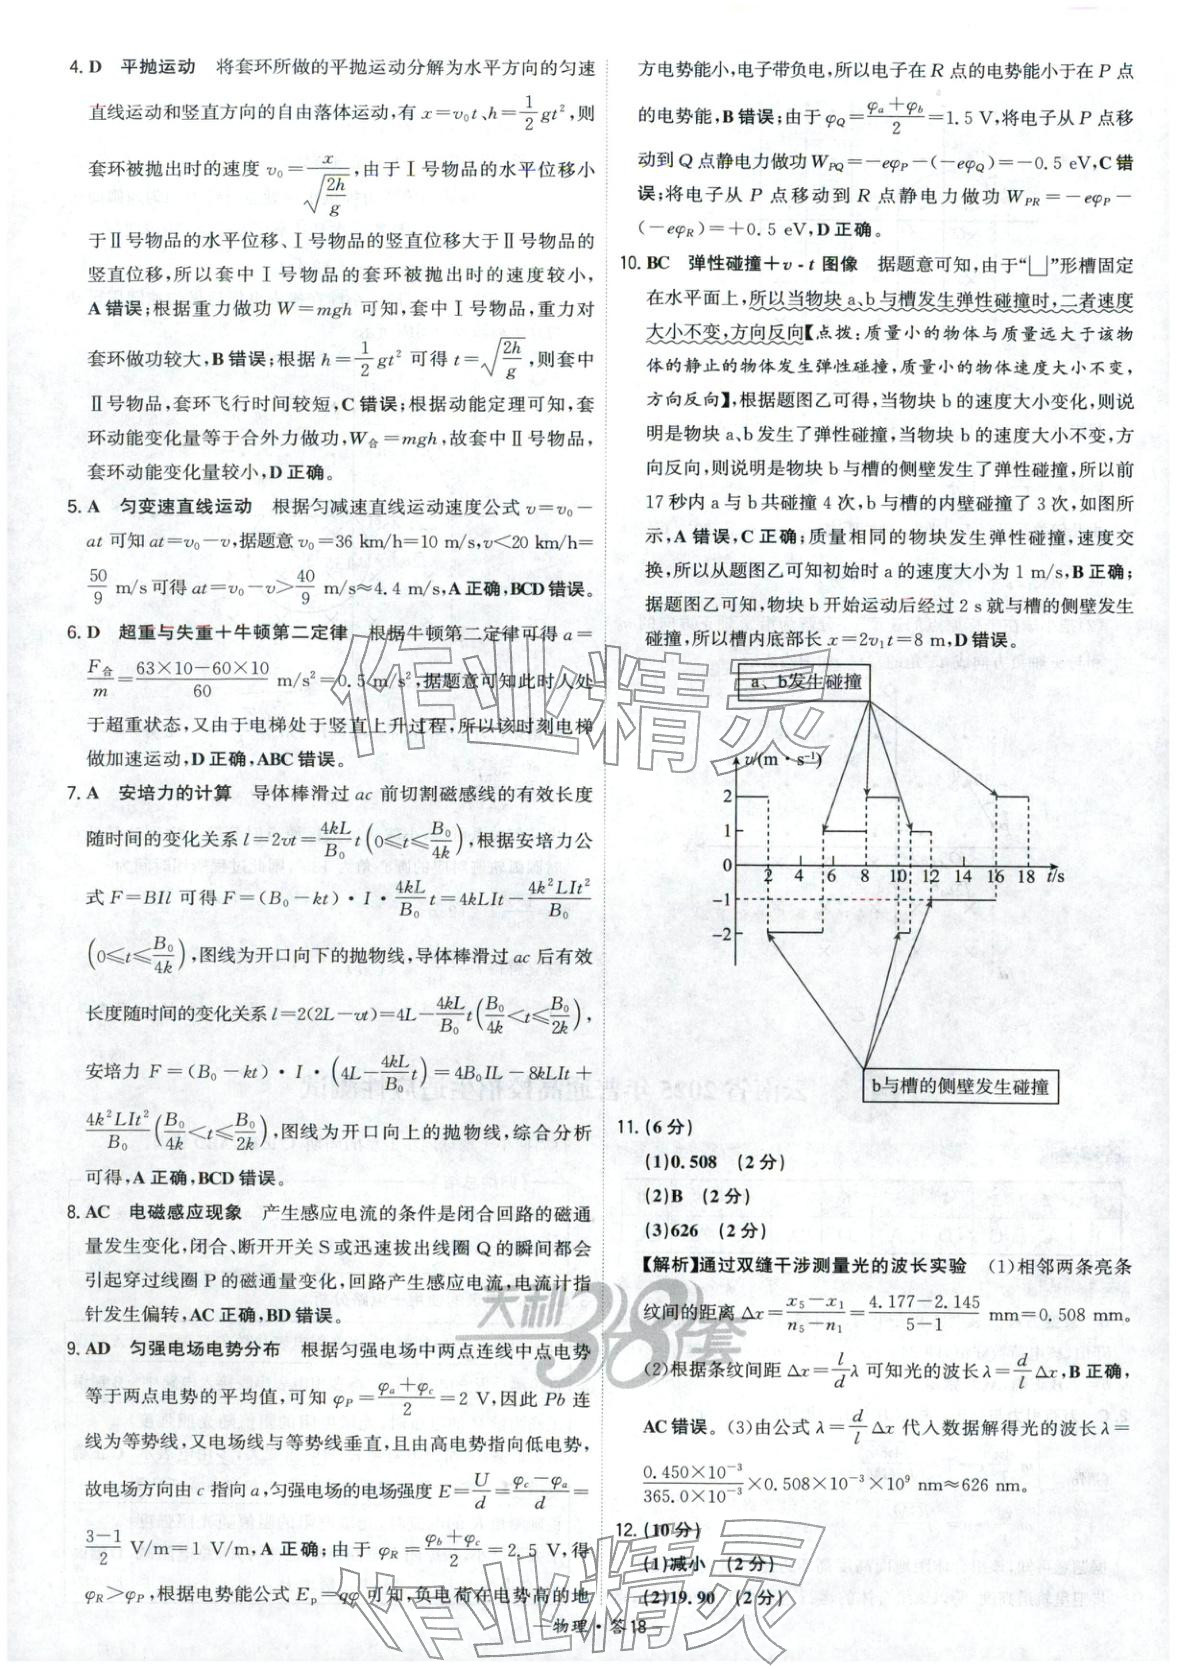 4. D　平抛运动　将套环所做的平抛运动分解为水平方向的匀速
直线运动和竖直方向的自由落体运动,有 x=v₀t、h=1/2 gt²,则
套环被抛出时的速度 v₀=x/√(2h/g),由于Ⅰ号物品的水平位移小
于Ⅱ号物品的水平位移、Ⅰ号物品的竖直位移大于Ⅱ号物品的
竖直位移,所以套中Ⅰ号物品的套环被抛出时的速度较小,
A 错误;根据重力做功 W=mgh 可知,套中Ⅰ号物品,重力对
套环做功较大,B 错误;根据 h=1/2 gt² 可得 t=√(2h/g),则套中
Ⅱ号物品,套环飞行时间较短,C 错误;根据动能定理可知,套
环动能变化量等于合外力做功,W合=mgh,故套中Ⅱ号物品,
套环动能变化量较小,D 正确。
5. A　匀变速直线运动　根据匀减速直线运动速度公式 v=v₀-
at 可知 at=v₀-v,据题意 v₀=36 km/h=10 m/s,v<20 km/h=
50/9 m/s 可得 at=v₀-v>40/9 m/s≈4.4 m/s,A 正确,BCD 错误。
6. D　超重与失重+牛顿第二定律　根据牛顿第二定律可得 a=
F合/m=(63×10-60×10)/60 m/s²=0.5 m/s²,据题意可知此时人处
于超重状态,又由于电梯处于竖直上升过程,所以该时刻电梯
做加速运动,D 正确,ABC 错误。
7. A　安培力的计算　导体棒滑过 ac 前切割磁感线的有效长度
随时间的变化关系 l=2vt=4kL/B₀ t(0≤t≤B₀/4k),根据安培力公
式 F=BIl 可得 F=(B₀-kt)·I·4kL/B₀ t=4kLIt-4k²LIt²/B₀
(0≤t≤B₀/4k),图线为开口向下的抛物线,导体棒滑过 ac 后有效
长度随时间的变化关系 l=2(2L-vt)=4L-4kL/B₀ t(B₀/4k<t≤B₀/2k),
安培力 F=(B₀-kt)·I·(4L-4kL/B₀ t)=4B₀IL-8kLIt+
4k²LIt²/B₀(B₀/4k<t≤B₀/2k),图线为开口向上的抛物线,综合分析
可得,A 正确,BCD 错误。
8. AC　电磁感应现象　产生感应电流的条件是闭合回路的磁通
量发生变化,闭合、断开开关 S 或迅速拔出线圈 Q 的瞬间都会
引起穿过线圈 P 的磁通量变化,回路产生感应电流,电流计指
针发生偏转,AC 正确,BD 错误。
9. AD　匀强电场电势分布　根据匀强电场中两点连线中点电势
等于两点电势的平均值,可知 φP=(φa+φc)/2=2 V,因此 Pb 连
线为等势线,又电场线与等势线垂直,且由高电势指向低电势,
故电场方向由 c 指向 a,匀强电场的电场强度 E=U/d=(φc-φa)/d=
(3-1)/2 V/m=1 V/m,A 正确;由于 φR=(φb+φc)/2=2.5 V,得
φR>φP,根据电势能公式 Ep=qφ 可知,负电荷在电势高的地
方电势能小,电子带负电,所以电子在 R 点的电势能小于在 P 点
的电势能,B 错误;由于 φQ=(φa+φb)/2=1.5 V,将电子从 P 点移
动到 Q 点静电力做功 WPQ=-eφP-(-eφQ)=-0.5 eV,C 错
误;将电子从 P 点移动到 R 点静电力做功 WPR=-eφP-
(-eφR)=+0.5 eV,D 正确。
10. BC　弹性碰撞+v-t 图像　据题意可知,由于“凵”形槽固定
在水平面上,所以当物块 a、b 与槽发生弹性碰撞时,二者速度
大小不变,方向反向【点拨:质量小的物体与质量远大于该物
体的静止的物体发生弹性碰撞,质量小的物体速度大小不变,
方向反向】,根据题图乙可得,当物块 b 的速度大小变化,则说
明是物块 a、b 发生了弹性碰撞,当物块 b 的速度大小不变,方
向反向,则说明是物块 b 与槽的侧壁发生了弹性碰撞,所以前
17 秒内 a 与 b 共碰撞 4 次,b 与槽的内壁碰撞了 3 次,如图所
示,A 错误,C 正确;质量相同的物块发生弹性碰撞,速度交
换,所以从题图乙可知初始时 a 的速度大小为 1 m/s,B 正确;
据题图乙可知,物块 b 开始运动后经过 2 s 就与槽的侧壁发生
碰撞,所以槽内底部长 x=2v₁t=8 m,D 错误。
a、b发生碰撞
v/(m·s⁻¹)
2
1
0
-1
-2
2 4 6 8 10 12 14 16 18 t/s
b与槽的侧壁发生碰撞
11. (6 分)
(1)0.508　(2 分)
(2)B　(2 分)
(3)626　(2 分)
【解析】通过双缝干涉测量光的波长实验　(1)相邻两条亮条
纹间的距离 Δx=(x₅-x₁)/(n₅-n₁)=(4.177-2.145)/(5-1) mm=0.508 mm。
(2)根据条纹间距 Δx=l/d λ 可知光的波长 λ=d/l Δx,B 正确,
AC 错误。(3)由公式 λ=d/l Δx 代入数据解得光的波长 λ=
(0.450×10⁻³)/(365.0×10⁻³)×0.508×10⁻³×10⁹ nm≈626 nm。
12. (10 分)
(1)减小　(2 分)
(2)19.90　(2 分)
物理·答18
天利38套
作业精灵
作业精灵